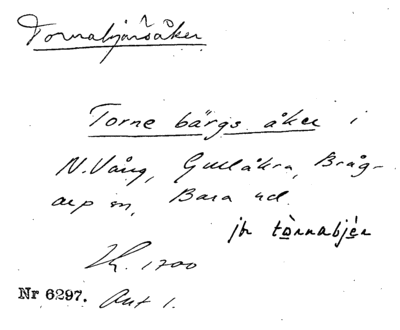 Tornabjärsåker
Torne bärgs åker i
N. Vång, Gullåkra, Bråg-
arp sn, Bara hd.
jfr tòrnabjèr
Lk. 1700
Nr 6297. Akt 1.